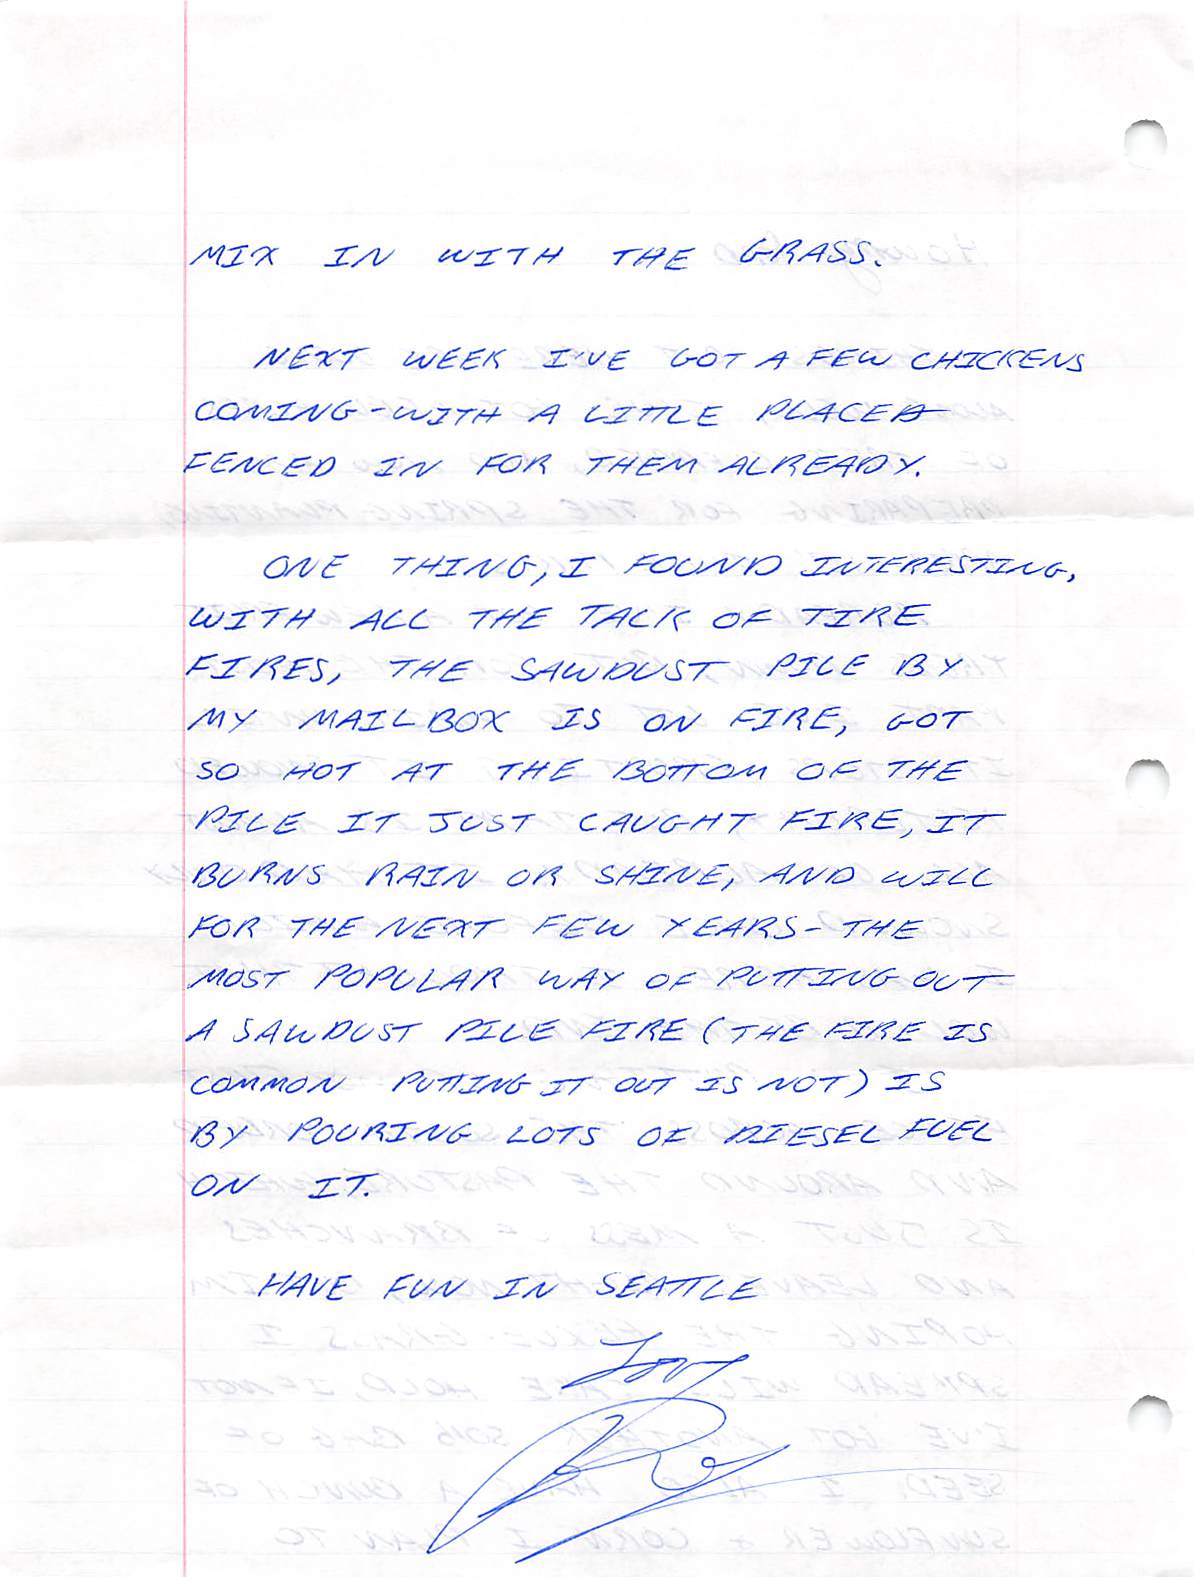 MIX IN WITH THE GRASS.
NEXT WEEK I'VE GOT A FEW CHICKENS
COMING - WITH A LITTLE PLACE
FENCED IN FOR THEM ALREADY.
ONE THING, I FOUND INTERESTING,
WITH ALL THE TALK OF TIRE
FIRES, THE SAWDUST PILE BY
MY MAILBOX IS ON FIRE, GOT
SO HOT AT THE BOTTOM OF THE
PILE IT JUST CAUGHT FIRE, IT
BURNS RAIN OR SHINE, AND WILL
FOR THE NEXT FEW YEARS - THE
MOST POPULAR WAY OF PUTTING OUT
A SAWDUST PILE FIRE (THE FIRE IS
COMMON PUTTING IT OUT IS NOT) IS
BY POURING LOTS OF DIESEL FUEL
ON IT.
HAVE FUN IN SEATTLE
Love